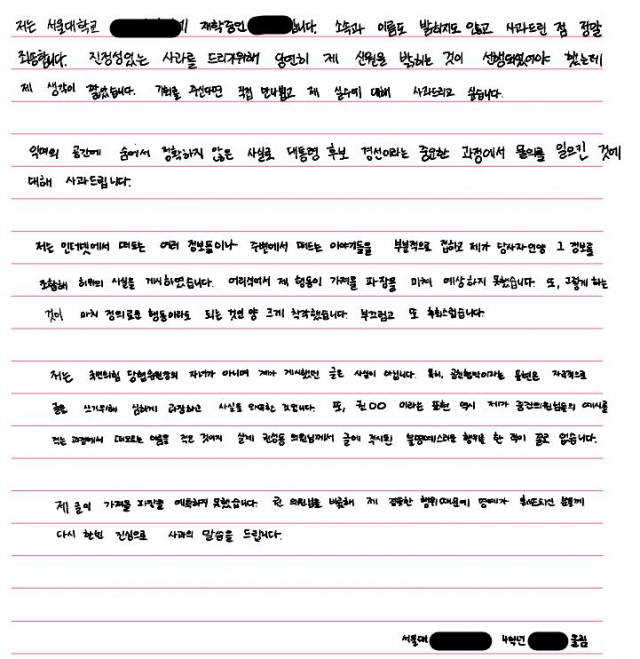 저는 서울대학교 재학중인 입니다. 소속과 이름도 밝히지도 않고 사과드린 점 정말
죄송합니다. 진정성있는 사과를 드리기위해 당연히 제 신원을 밝히는 것이 선행되었어야 했는데
제 생각이 짧았습니다. 기회를 주신다면 직접 만나뵙고 제 실수에 대해 사과드리고 싶습니다.
익명의 공간에 숨어서 정확하지 않은 사실로 대통령 후보 경선이라는 중요한 과정에서 물의를 일으킨 것에
대해 사과드립니다.
저는 인터넷에서 떠도는 여러 정보들이나 주변에서 떠드는 이야기들을 부분적으로 접하고 제가 당사자인양 그 정보를
조합해 허위의 사실을 게시하였습니다. 어리석여서 제 행동이 가져올 파장을 미처 예상하지 못했습니다. 또, 그렇게 하는
것이 마치 정의로운 행동이라도 되는 것인 양 크게 착각했습니다. 부끄럽고 또 후회스럽습니다.
저는 국민의힘 당협위원장의 자녀가 아니며 제가 게시했던 글은 사실이 아닙니다. 특히, 공천협박이라는 표현은 자극적으로
글을 쓰기위해 심하게 과장하고 사실을 왜곡한 것입니다. 또, 권OO 이라는 표현 역시 제가 중진의원님들의 예시를
적는 과정에서 떠오르는 이름을 적은 것이지 실제 권성동 의원님께서 글에 적시된 불명예스러운 행위를 한 적이 결코 없습니다.
제 글이 가져올 파장을 예측하지 못했습니다. 권 의원님을 비롯해 제 경솔한 행위때문에 명예가 훼손되신 분들께
다시 한번 진심으로 사과의 말씀을 드립니다.
서울대 4학년 올림